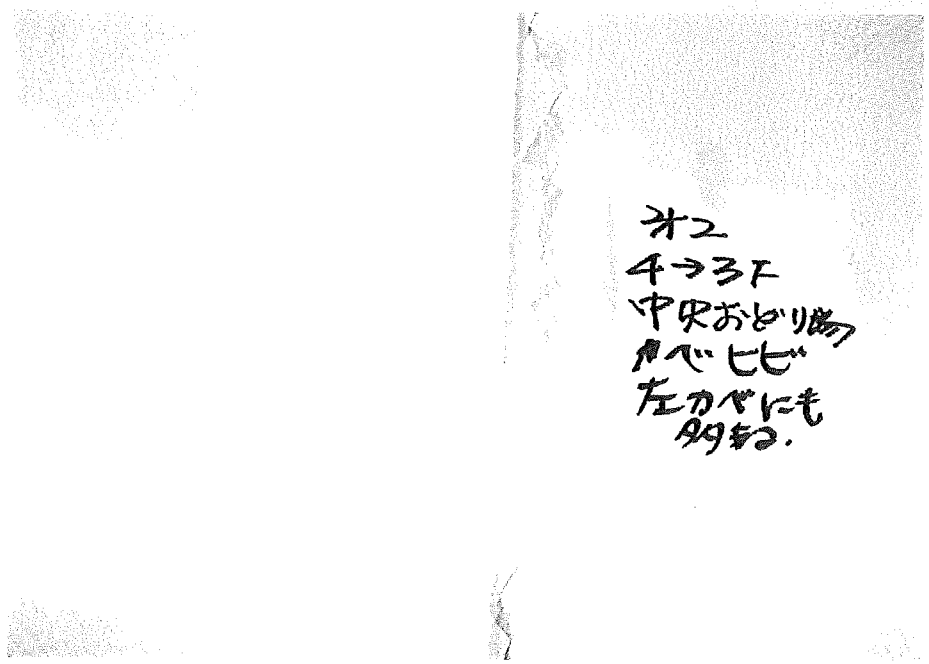 才2
4→3F
中央おどり場
カベヒビ
左カベにも
多々ある.